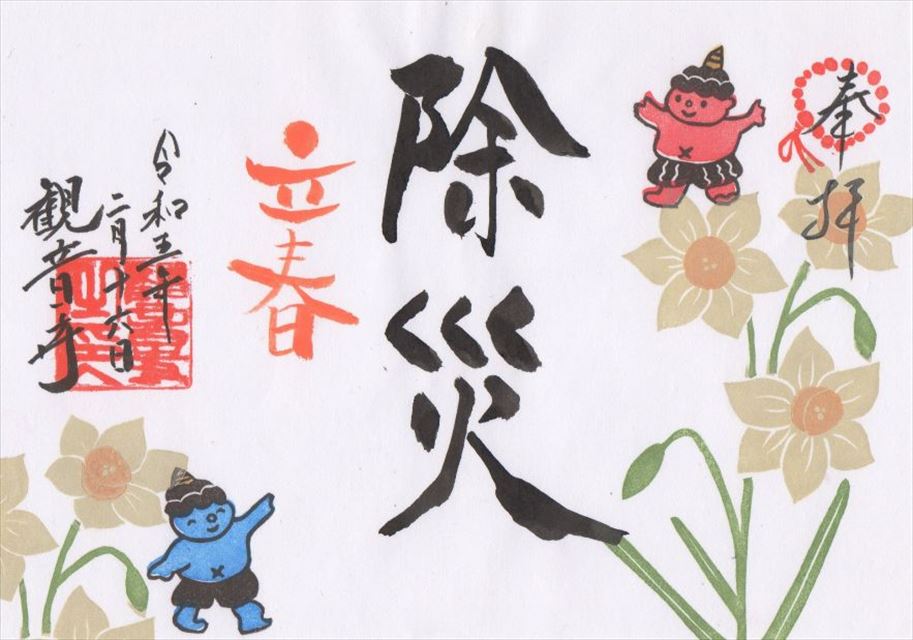 奉拝
除災
立春
令和三年
二月十六日
観音寺